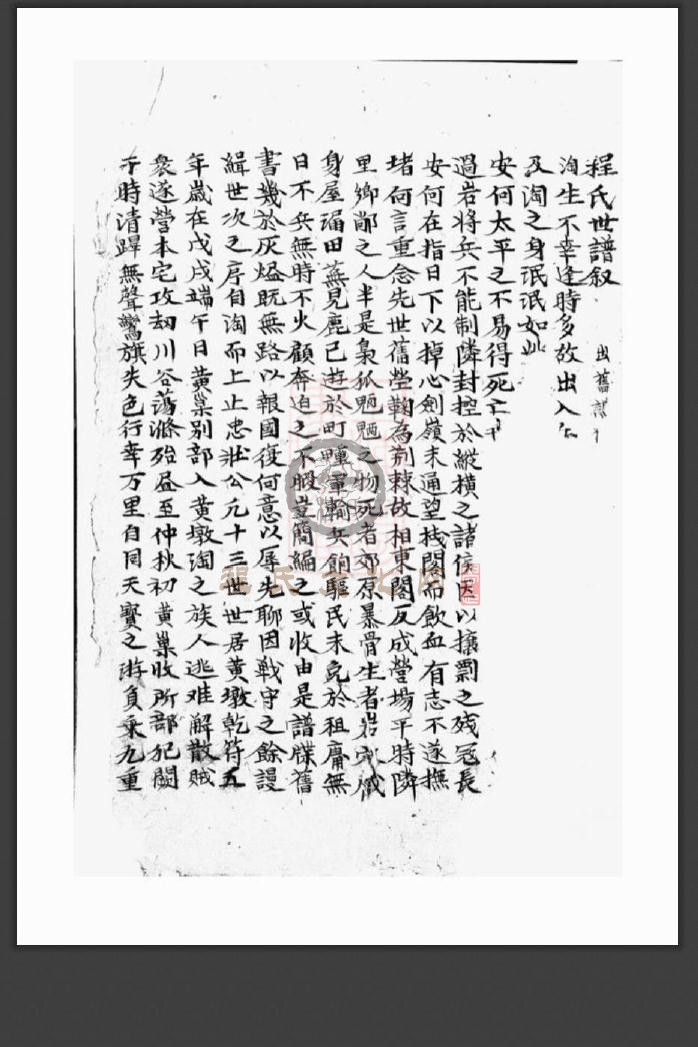 程氏世譜叙 出舊譜
淘生不幸逢時多故出入
及淘之身泯泯如此
安何太平之不易得死亡
過岩將兵不能制隣封控於縱横之諸侯因以攘剽之残冦長
安何在指日下以掉心劍嶺未通望棧閣而飲血有志不遂撫
堵何言重念先世舊塋鞠為荆棘故相東閣反成營塲平時隣
里鄉鄙之人半是梟狐魍魎之物死者郊原暴骨生者岩穴
身屋漏田蕪見鹿已遊於町疃軍輸兵餉驅民未免於租庸無
日不兵無時不火顧奔迫之不暇豈簡編之或收由是譜牒舊
書幾於灰燼既無路以報國復何意以辱先聊因戰守之餘謾
緝世次之序自淘而上止忠壯公凡十三世世居黄墩乾符五
年歲在戊戌端午日黄巢别部入黄墩淘之族人逃难解散賊
衆遂營本宅攻刼川谷蕩滌殆盡至仲秋初黄巢收所部犯闕
于時清蹕無聲鸞旗失色行幸万里自同天寳之游負乘九重